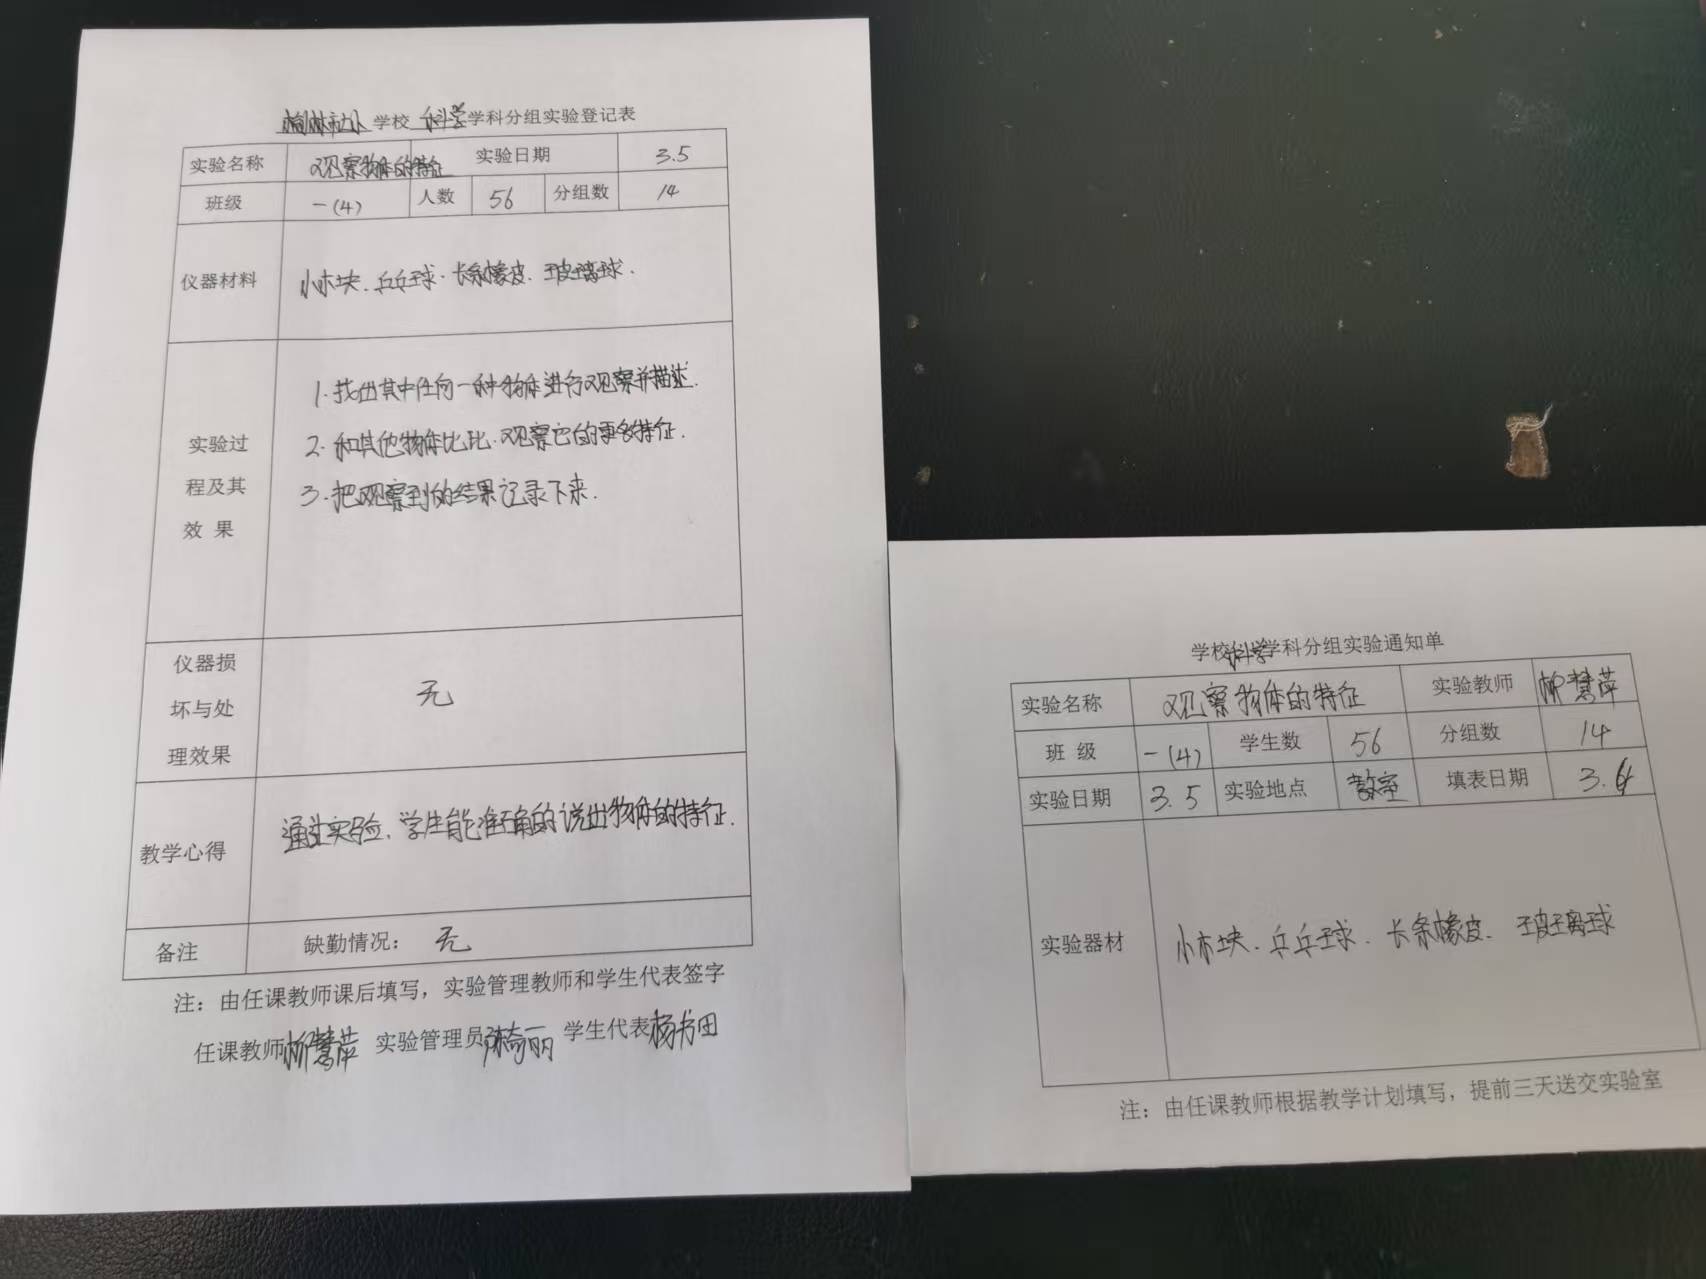 榆林市 学校 科学 学科分组实验登记表
实验名称 观察物体的特征 实验日期 3.5
班级 一(4) 人数 56 分组数 14
仪器材料 小木块、乒乓球、长条橡皮、玻璃球.
实验过程及其效果
1.找出其中任何一种物体进行观察并描述.
2.和其他物体比比、观察它的更多特征.
3.把观察到的结果记录下来.
仪器损坏与处理效果 无
教学心得 通过实验、学生能准确的说出物体的特征.
备注 缺勤情况: 无
注:由任课教师课后填写,实验管理教师和学生代表签字
任课教师 柳慧萍 实验管理员 奇丽 学生代表 杨书田
学校科学学科分组实验通知单
实验名称 观察物体的特征 实验教师 柳慧萍
班 级 一(4) 学生数 56 分组数 14
实验日期 3.5 实验地点 教室 填表日期
实验器材 小木块、乒乓球、长条橡皮、玻璃球
注:由任课教师根据教学计划填写,提前三天送交实验室